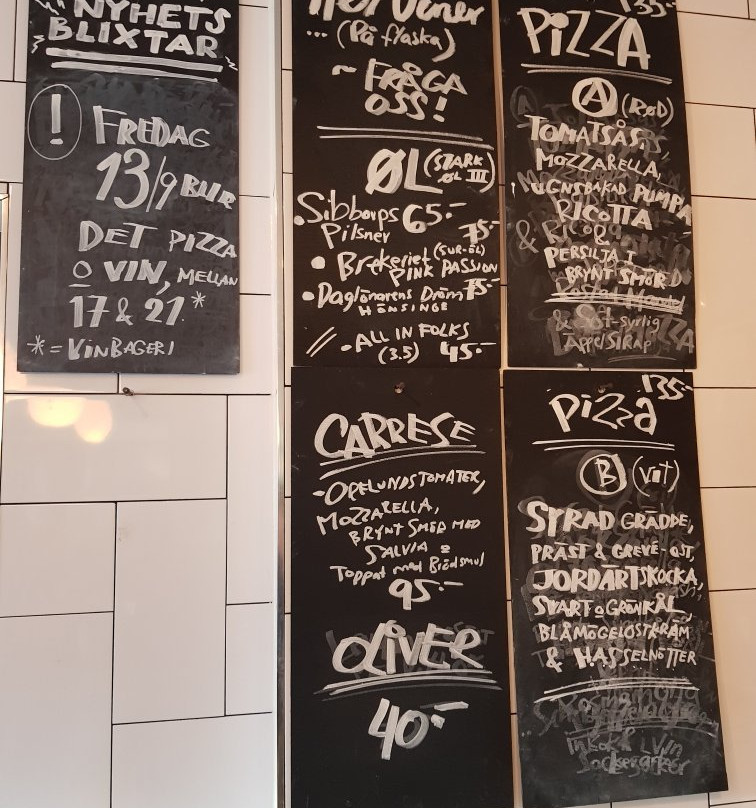 NYHETS
BLIXTAR
! FREDAG
13/9 BLIR
DET PIZZA
O VIN, MELLAN
17 & 21*
* = VINBAGERI
... (På flaska)
~ FRÅGA
OSS!
ØL (STARK
ØL III)
• Sibbarps 65:-
Pilsner 75:-
• Brekeriet (SUR-ÖL)
PINK PASSION
• Daglönarens Dröm 75:-
HÖNSINGE
// • ALL IN FOLKS
(3.5) 45:-
CARRESE
- OPELUNDSTOMATER,
MOZZARELLA,
BRYNT SMÖR MED
SALVIA &
Toppat med Brödsmul
95:-
OLIVER
40:-
135:-
PIZZA
A (RÖD)
TOMATSÅS,
MOZZARELLA,
UGNSBAKAD PUMPA
RICOTTA
&
PERSILJA I
BRYNT SMÖR
& Söt-syrlig
ÄPPELSIRAP
135:-
Pizza
B (Vit)
SYRAD GRÄDDE,
PRÄST & GREVÉ-OST,
JORDÄRTSKOCKA,
SVART O GRÖNKÅL,
BLÅMÖGELOSTKRÄM
& HASSELNÖTTER